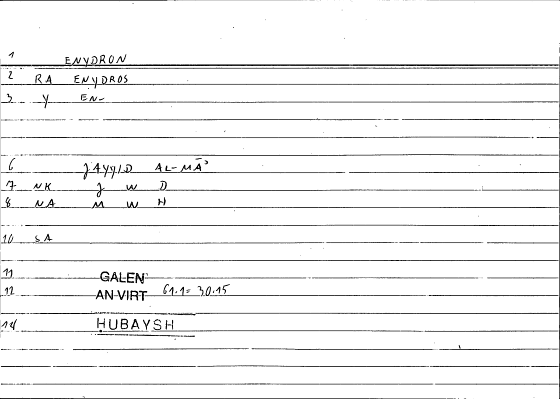 1 ENYDRON
2 RA ENYDROS
3 Y EN-
6 ǦAYYID AL-MĀʾ
7 NK Ǧ W D
8 NA M W H
10 SA
11 GALEN
12 AN VIRT 61.1 = 30.15
14 ḤUBAYSH